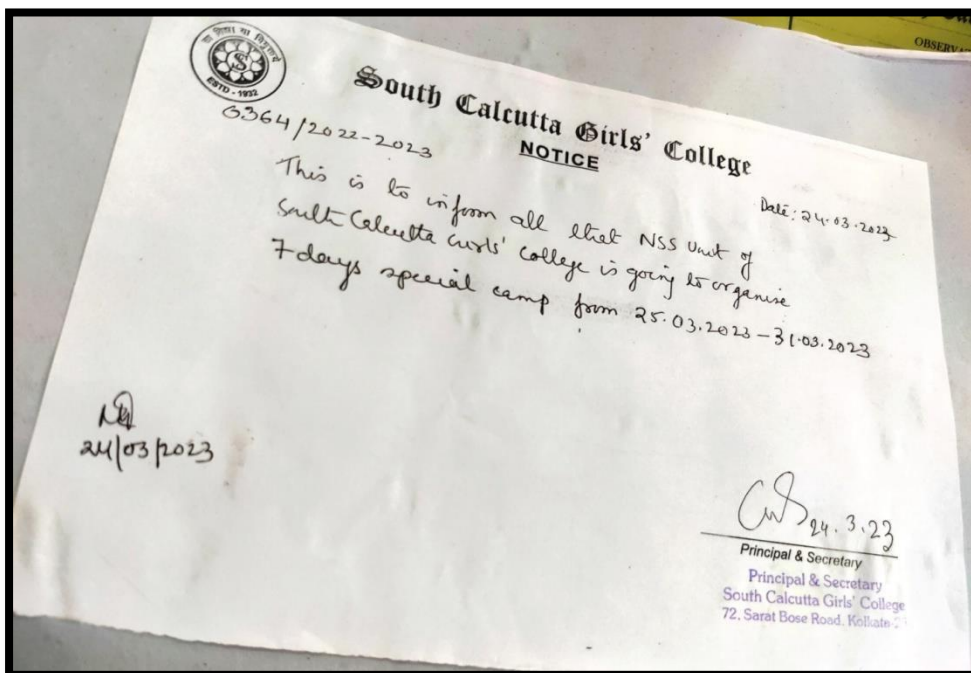 सा विद्या या विमुक्तये
ESTD - 1932
South Calcutta Girls' College
NOTICE
0364/2022-2023
Date: 24.03.2023
This is to inform all that NSS Unit of
South Calcutta Girls' College is going to organise
7 days special camp from 25.03.2023 – 31.03.2023
24/03/2023
24.3.23
Principal & Secretary
Principal & Secretary
South Calcutta Girls' College
72, Sarat Bose Road, Kolkata-